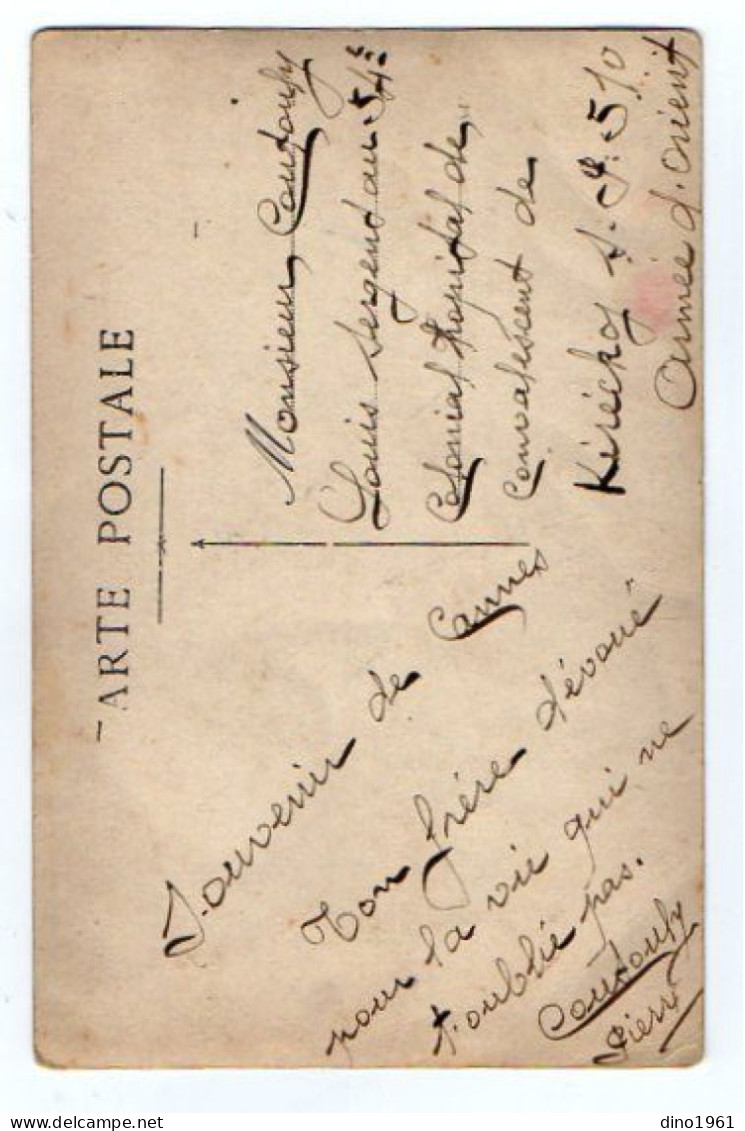 ARTE POSTALE
Souvenir de Cannes
Ton frère dévoué
pour la vie qui ne
t'oublie pas.
Pierre
Monsieur
Louis Sergent au 54e
Colonial hopital de
Convalescent de
Kiréchoy S. P. 510
Armée d'Orient
dino1961